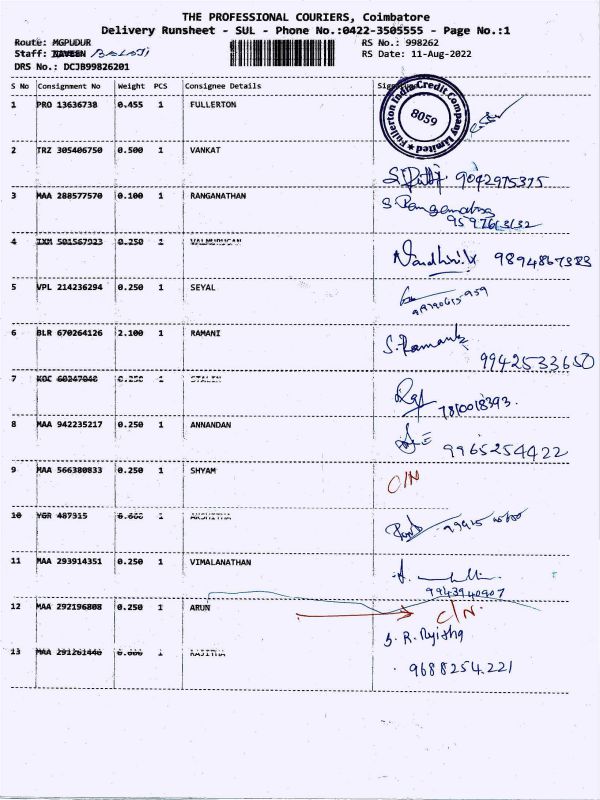 THE PROFESSIONAL COURIERS, Coimbatore
Delivery Runsheet - SUL - Phone No.:0422-3505555 - Page No.:1
Route: MGPUDUR
RS No.: 998262
Staff: NAVEEN BALAJI
RS Date: 11-Aug-2022
DRS No.: DCJB99826201
S No Consignment No Weight PCS Consignee Details
1 PRO 13636738 0.455 1 FULLERTON
Fullerton India Credit Company Limited
8059
2 TRZ 305406750 0.500 1 VANKAT
9042975375
3 MAA 288577570 0.100 1 RANGANATHAN
S. Ranganathan
4 IXM 501567923 0.250 1 VALMURUGAN
9894867383
5 VPL 214236294 0.250 1 SEYAL
6 BLR 670264126 2.100 1 RAMANI
S. Ramani
9942533650
7 KOC 60247040 0.250 1 STALIN
7810018393.
8 MAA 942235217 0.250 1 ANNANDAN
9965254422
9 MAA 566380833 0.250 1 SHYAM
C/N
10 YGR 487315 1 AKSHITHA
11 MAA 293914351 0.250 1 VIMALANATHAN
9943940907
12 MAA 292196808 0.250 1 ARUN
C/N.
13 MAA 291261440 1 RAJITHA
9688254221